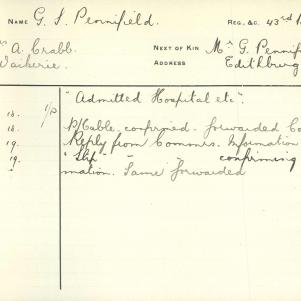 NAME G. S. Pennifield. REG. &C. 43rd
A. Crabb. NEXT OF KIN Mr G. Pennif
Waikerie. ADDRESS Edithburg
"Admitted Hospital etc".
18. P/Cable, confirmed. Forwarded Co
19. Reply from Commrs. Information
19. "Slip" " " confirming
mation. Same forwarded